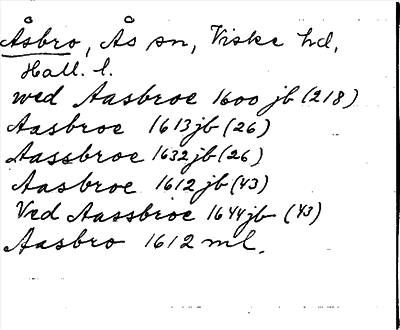 Åsbro, Ås sn, Viske hd,
Hall. l.
wed Aasbroe 1600 jb (218)
Aasbroe 1613 jb (26)
Aassbroe 1632 jb (26)
Aasbroe 1612 jb (43)
Ved Aassbroe 1644 jb (43)
Aasbro 1612 ml.